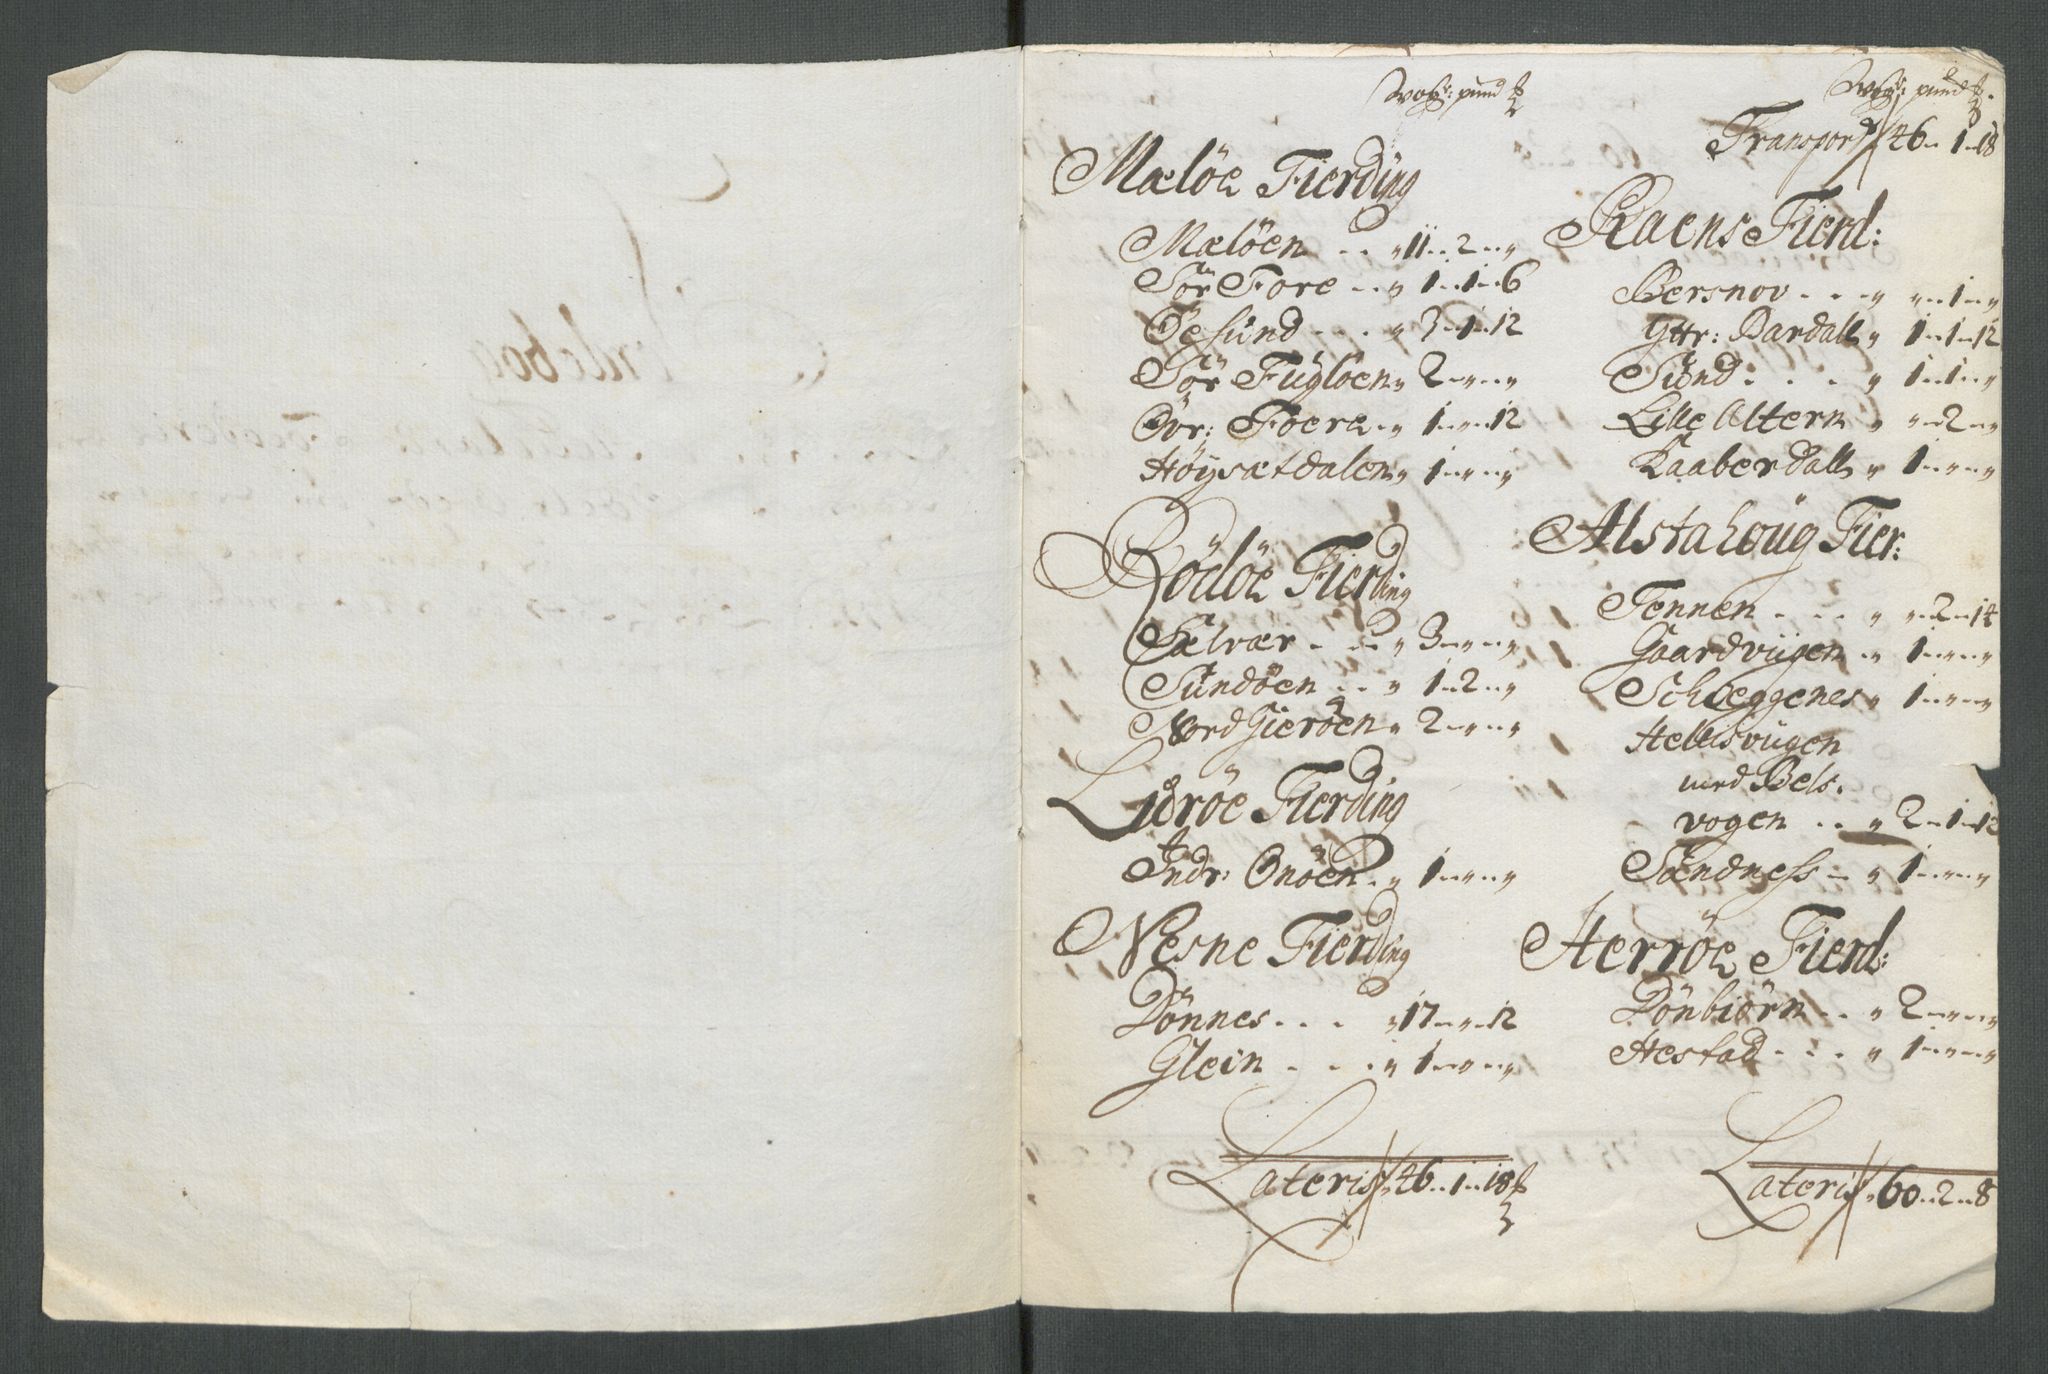 Wogr: pund ℔
Mælöe Fierding
Mælöen . . „ 11 „ 2 „ „
Sör Fore . . „ 1 „ 1 „ 6
Öesund . . . „ 3 „ 1 „ 12
Sör Fugløen „ 2 „ „ „ „
Övr: Foere „ 1 „ „ „ 12
Höysætdalen „ 1 „ „ „ „
Rödöe Fierding
Sælvær . . . „ 3 „ „ „ „
Sundöen . . „ 1 „ 2 „ „
Nord Gieröen „ 2 „ „ „ „
Luröe Fierding
Indr: Onöen . „ 1 „ „ „ „
Nesne Fierding
Dönnes . . . „ 17 „ „ „ 12
Glein . . . „ 1 „ „ „ „
Lateris „ 46 „ 1 „ 18 ℔
Wogr: pund ℔.
Transport 46 „ 1 „ 18
Raens Fierd:
Bersnov . . . „ „ „ 1 „ „
Yttr: Bardall „ 1 „ 1 „ 12
Sund . . . „ 1 „ 1 „ „
Lille Altern „ „ „ 2 „ „
Kaaberdall „ 1 „ „ „ „
Alstahoug Fier:
Tennen . . . „ „ „ 2 „ 14
Gaardviigen . „ 1 „ „ „ „
Schieggenes „ 1 „ „ „ „
Hellisviigen
med Bels.
vogen . . „ 2 „ 1 „ 12
Sandness . „ 1 „ „ „ „
Herröe Fierd:
Dönbiörn . . „ 2 „ „ „ „
Hestad . . . „ 1 „ „ „ „
Lateris „ 60 „ 2 „ 8